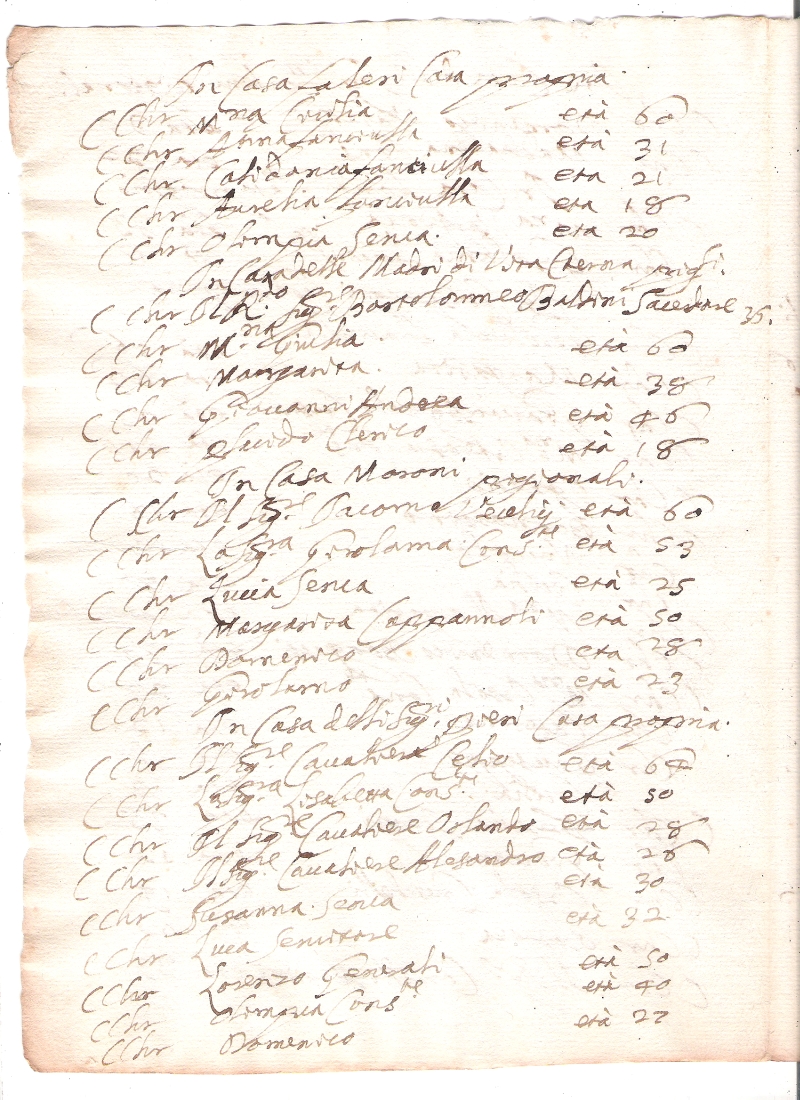 In Casa Lateri Casa propria.
C Chr M.na Cecilia età 60
C Chr Anna fanciulla età 31
C Chr Calidonia fanciulla età 21
C Chr Aurelia fanciulla età 18
C Chr Olimpia Serua. età 20
In Casa delle Madri di Vita Eterna
C Chr Il R.do Sig.re Bartolommeo Baldini Sacerdote 36.
C Chr M.na Giulia età 60
C Chr Margarita. età 38
C Chr Giouanni Andrea età 46
C Chr Clerico età 18
In Casa Moroni pigionali.
C Chr Il Sig.re Iacomo Vecchij età 60
C Chr La Sig.ra Girolama Cons.te età 53
C Chr Lucia Serua età 25
C Chr Margarita Cappannoli età 50
C Chr Domenico età 28
C Chr Girolamo età 23
In Casa delli Sig.ri Pieri Casa propria.
C Chr Il Sig.re Caualiere Celio età 64
C Chr La Sig.ra Lisabetta Cons.te età 50
C Chr Il Sig.re Caualiere Orlando età 28
C Chr Il Sig.re Caualiere Alesandro età 26
C Chr Susanna Serua età 30
C Chr Luca Seruitore età 32
C Chr Lorenzo Generali età 50
C Chr Olimpia Cons.te età 40
C Chr Domenico età 27